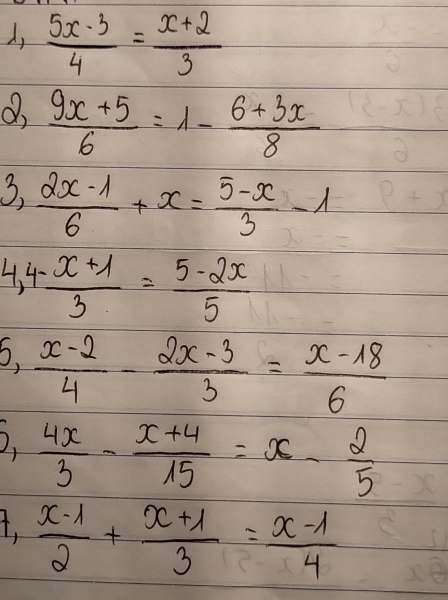 1, (5x-3)/4 = (x+2)/3
2, (9x+5)/6 = 1 - (6+3x)/8
3, (2x-1)/6 + x = (5-x)/3 - 1
4, 4 - (x+1)/3 = (5-2x)/5
5, (x-2)/4 - (2x-3)/3 = (x-18)/6
6, 4x/3 - (x+4)/15 = x - 2/5
7, (x-1)/2 + (x+1)/3 = (x-1)/4